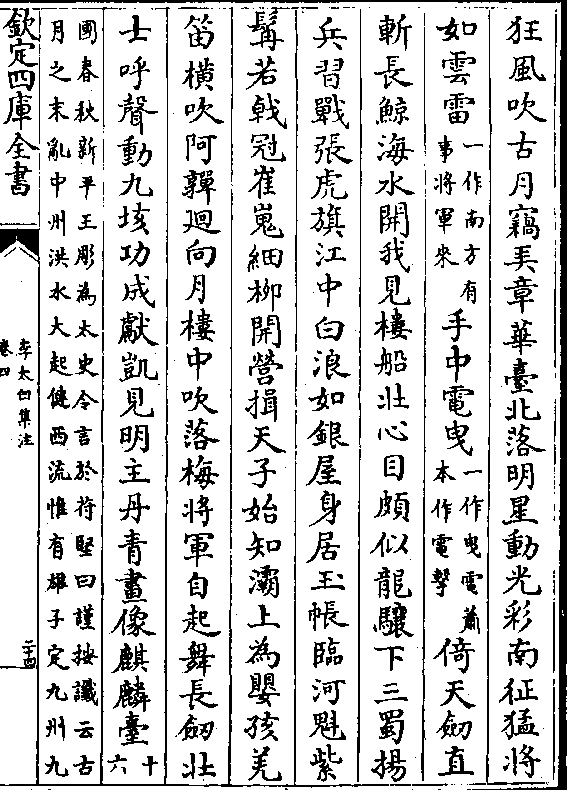 狂風吹古月竊弄章華臺北落明星動光彩南征猛將
如雲雷一作南方有事將軍來手中電曳一作曳電蕭本作電擊倚天劒直
斬長鯨海水開我見樓船壯心目頗似龍驤下三蜀揚
兵習戰張虎旗江中白浪如銀屋身居玉帳臨河魁紫
髯若戟冠崔嵬細柳開營揖天子始知灞上為嬰孩羌
笛橫吹阿嚲廻向月樓中吹落梅將軍自起舞長劒壯
士呼聲動九垓功成獻凱見明主丹青畫像麒麟臺十六
國春秋新平王彫為太史令言於苻堅曰謹按讖云古
月之末亂中州洪水大起健西流惟有雄子定九州九
欽定四庫全書
李太白集注
卷四
二十四